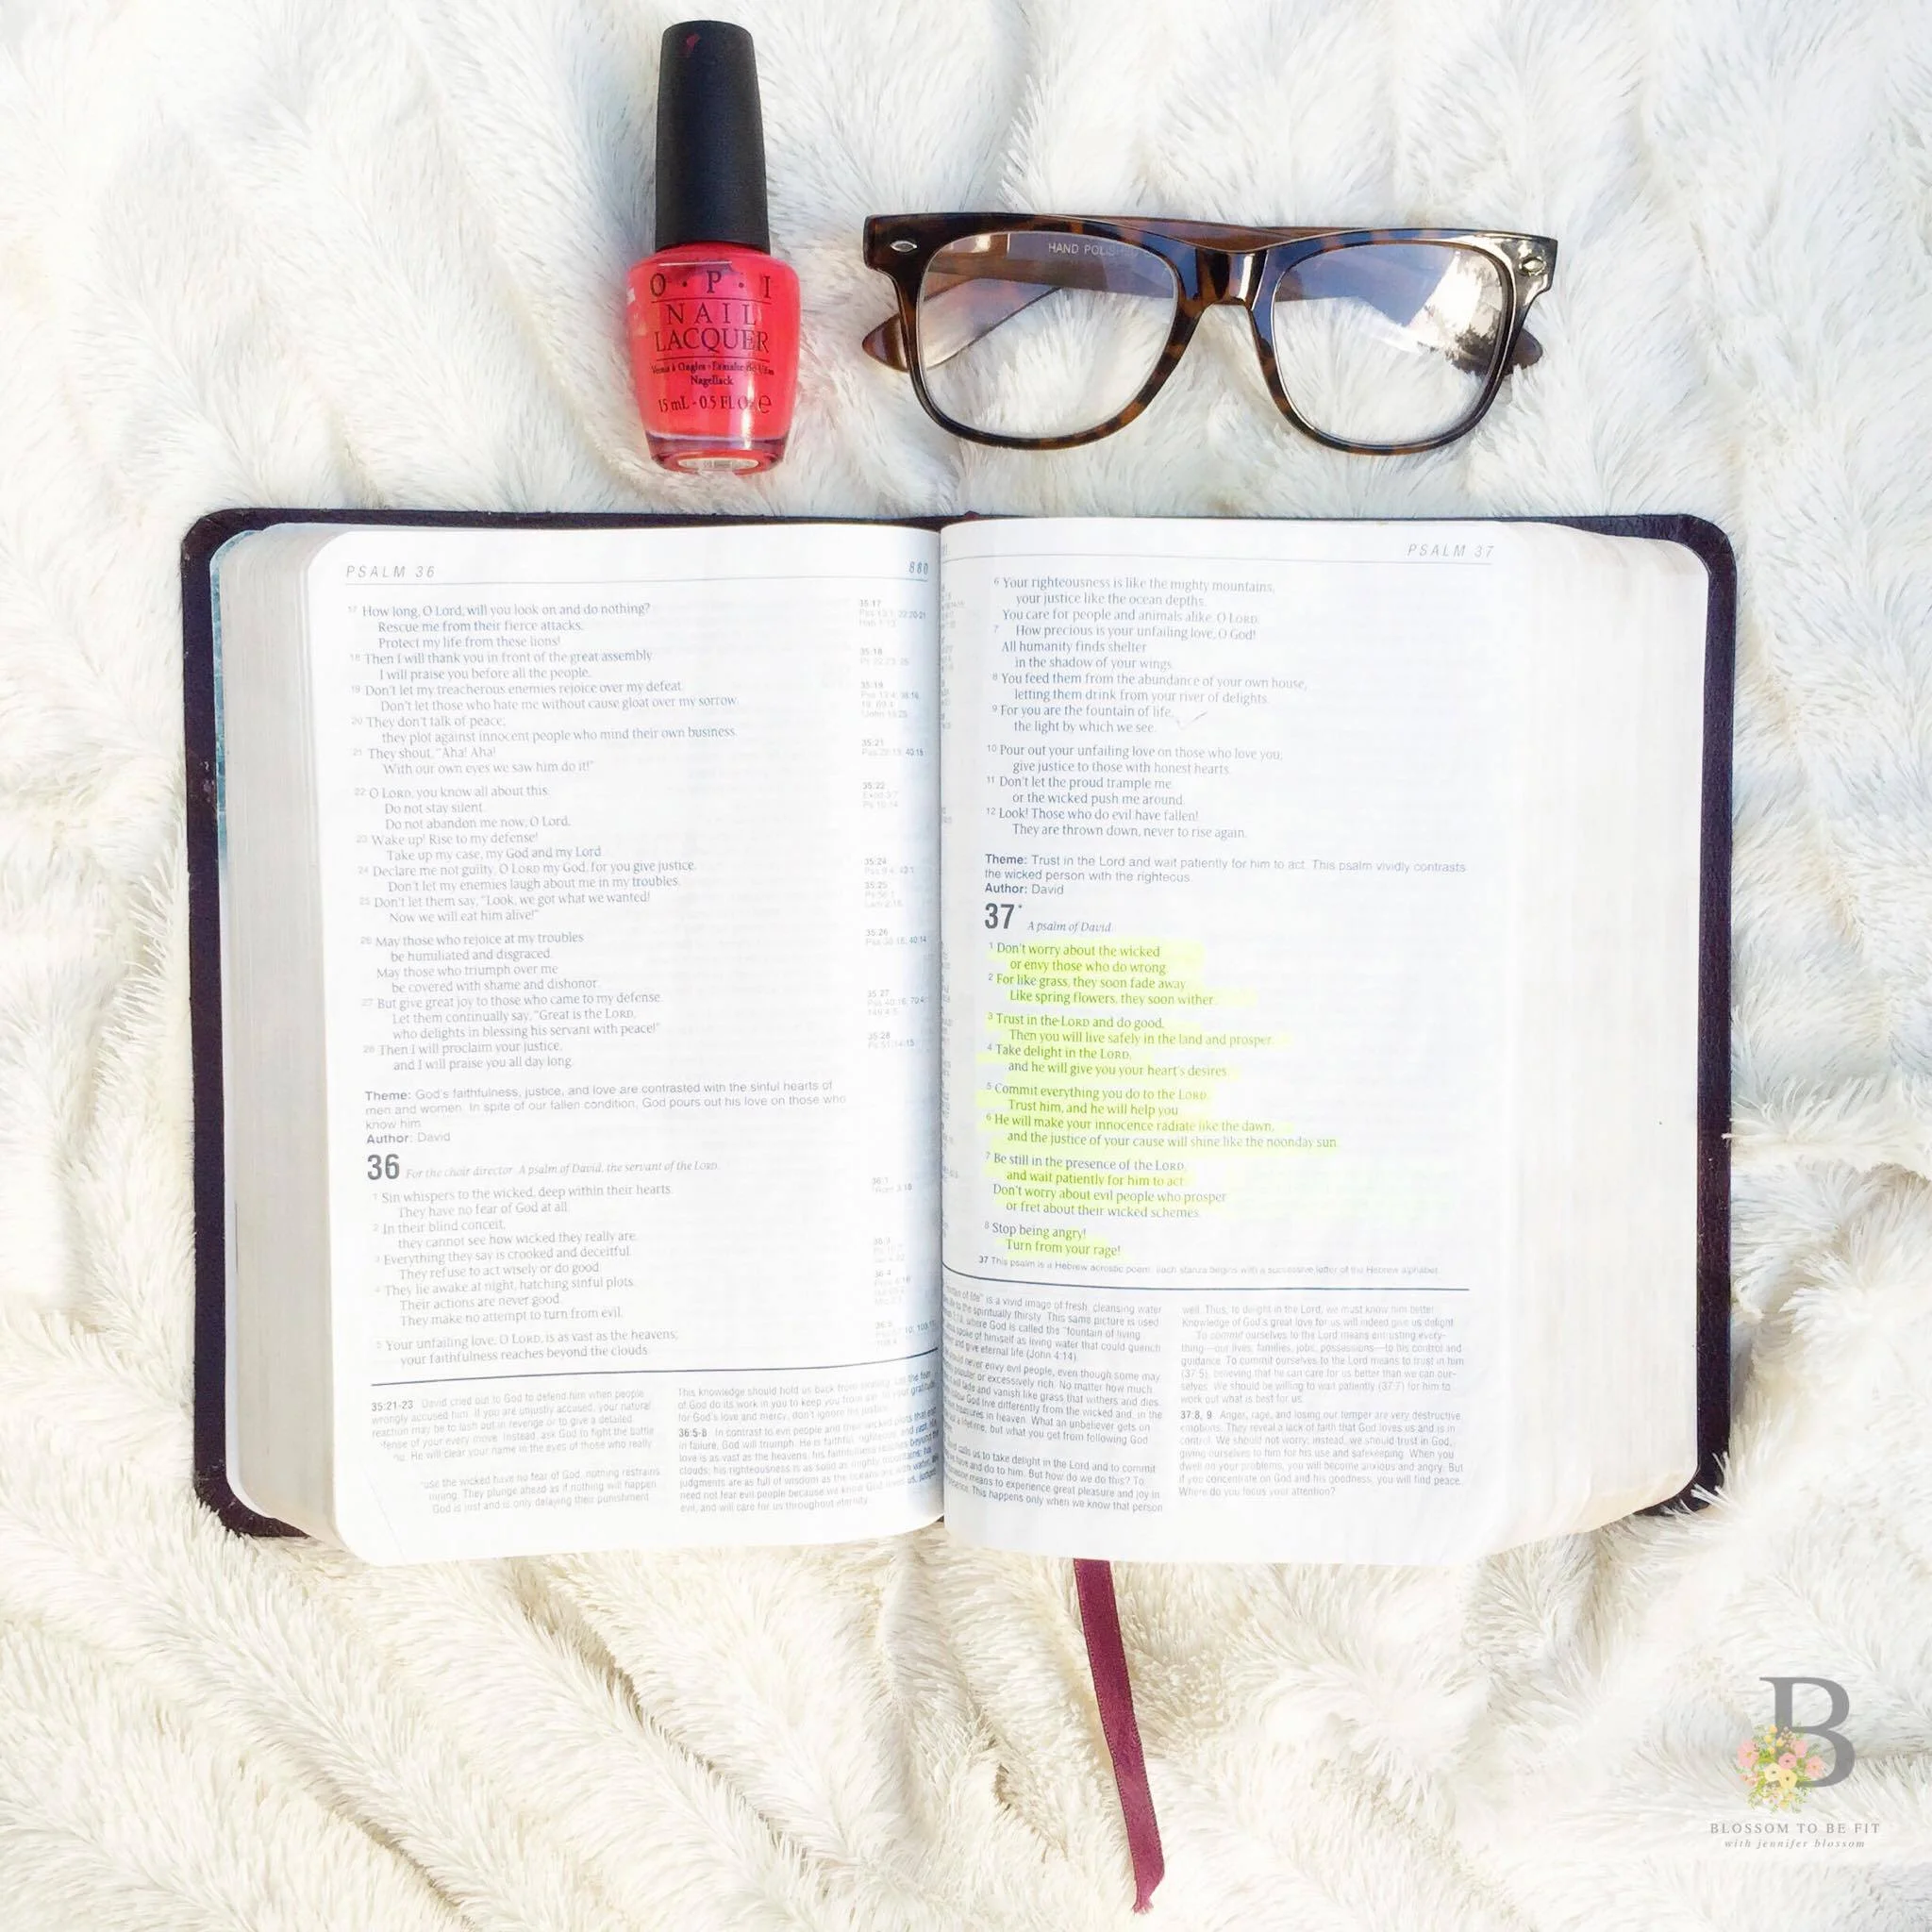 O·P·I
NAIL
LACQUER
Nagellack
15 mL - 0.5 FL Oz e
HAND POLIS
PSALM 36
880
17 How long, O Lord, will you look on and do nothing?
Rescue me from their fierce attacks.
Protect my life from these lions!
18 Then I will thank you in front of the great assembly.
I will praise you before all the people.
19 Don't let my treacherous enemies rejoice over my defeat.
Don't let those who hate me without cause gloat over my sorrow.
20 They don't talk of peace;
they plot against innocent people who mind their own business.
21 They shout, "Aha! Aha!
With our own eyes we saw him do it!"
22 O LORD, you know all about this.
Do not stay silent.
Do not abandon me now, O Lord.
23 Wake up! Rise to my defense!
Take up my case, my God and my Lord.
24 Declare me not guilty, O LORD my God, for you give justice.
Don't let my enemies laugh about me in my troubles.
25 Don't let them say, "Look, we got what we wanted!
Now we will eat him alive!"
26 May those who rejoice at my troubles
be humiliated and disgraced.
May those who triumph over me
be covered with shame and dishonor.
27 But give great joy to those who came to my defense.
Let them continually say, "Great is the LORD,
who delights in blessing his servant with peace!"
28 Then I will proclaim your justice,
and I will praise you all day long.
Theme: God's faithfulness, justice, and love are contrasted with the sinful hearts of
men and women. In spite of our fallen condition, God pours out his love on those who
know him.
Author: David
36 For the choir director: A psalm of David, the servant of the LORD.
1 Sin whispers to the wicked, deep within their hearts.
They have no fear of God at all.
2 In their blind conceit,
they cannot see how wicked they really are.
3 Everything they say is crooked and deceitful.
They refuse to act wisely or do good.
4 They lie awake at night, hatching sinful plots.
Their actions are never good.
They make no attempt to turn from evil.
5 Your unfailing love, O LORD, is as vast as the heavens;
your faithfulness reaches beyond the clouds.
35:17
35:18
35:19
35:21
35:22
35:24
35:25
35:26
35:27
35:28
36:1
35:21-23 David cried out to God to defend him when people
wrongly accused him. If you are unjustly accused, your natural
reaction may be to lash out in revenge or to give a detailed
defense of your every move. Instead, ask God to fight the battle
He will clear your name in the eyes of those who really
the wicked have no fear of God, nothing restrains
They plunge ahead as if nothing will happen
God is just and is only delaying their punishment.
This knowledge should hold us back from
of God do its work in you to keep you
for God's love and mercy, don't ignore his
36:5-8 In contrast to evil people and their wicked plots that end
in failure, God will triumph. He is faithful, righteous, and just. His
love is as vast as the heavens; his faithfulness reaches beyond the
clouds; his righteousness is as solid as mighty mountains; his
judgments are as full of wisdom as the oceans are with water. We
need not fear evil people because we know God loves us, judges
evil, and will care for us throughout eternity.
PSALM 37
6 Your righteousness is like the mighty mountains,
your justice like the ocean depths.
You care for people and animals alike, O LORD.
7 How precious is your unfailing love, O God!
All humanity finds shelter
in the shadow of your wings.
8 You feed them from the abundance of your own house,
letting them drink from your river of delights.
9 For you are the fountain of life,
the light by which we see.
10 Pour out your unfailing love on those who love you;
give justice to those with honest hearts.
11 Don't let the proud trample me
or the wicked push me around.
12 Look! Those who do evil have fallen!
They are thrown down, never to rise again.
Theme: Trust in the Lord and wait patiently for him to act. This psalm vividly contrasts
the wicked person with the righteous.
Author: David
37* A psalm of David.
1 Don't worry about the wicked
or envy those who do wrong.
2 For like grass, they soon fade away.
Like spring flowers, they soon wither.
3 Trust in the LORD and do good.
Then you will live safely in the land and prosper.
4 Take delight in the LORD,
and he will give you your heart's desires.
5 Commit everything you do to the LORD.
Trust him, and he will help you.
6 He will make your innocence radiate like the dawn,
and the justice of your cause will shine like the noonday sun.
7 Be still in the presence of the LORD,
and wait patiently for him to act.
Don't worry about evil people who prosper
or fret about their wicked schemes.
8 Stop being angry!
Turn from your rage!
37 This psalm is a Hebrew acrostic poem; each stanza begins with a successive letter of the Hebrew alphabet.
of life" is a vivid image of fresh, cleansing water
the spiritually thirsty. This same picture is used
where God is called the "fountain of living
spoke of himself as living water that could quench
and give eternal life (John 4:14).
never envy evil people, even though some may
popular or excessively rich. No matter how much
fade and vanish like grass that withers and dies.
God live differently from the wicked and, in the
treasures in heaven. What an unbeliever gets
but what you get from following God
calls us to take delight in the Lord and to commit
have and do to him. But how do we do this? To
means to experience great pleasure and joy in
This happens only when we know that person
well. Thus, to delight in the Lord, we must know him better.
Knowledge of God's great love for us will indeed give us delight.
To commit ourselves to the Lord means entrusting every-
thing—our lives, families, jobs, possessions—to his control and
guidance. To commit ourselves to the Lord means to trust in him
(37:5), believing that he can care for us better than we can our-
selves. We should be willing to wait patiently (37:7) for him to
work out what is best for us.
37:8, 9 Anger, rage, and losing our temper are very destructive
emotions. They reveal a lack of faith that God loves us and is in
control. We should not worry; instead, we should trust in God,
giving ourselves to him for his use and safekeeping. When you
dwell on your problems, you will become anxious and angry. But
if you concentrate on God and his goodness, you will find peace.
Where do you focus your attention?
B
BLOSSOM TO BE FIT
with jennifer blossom